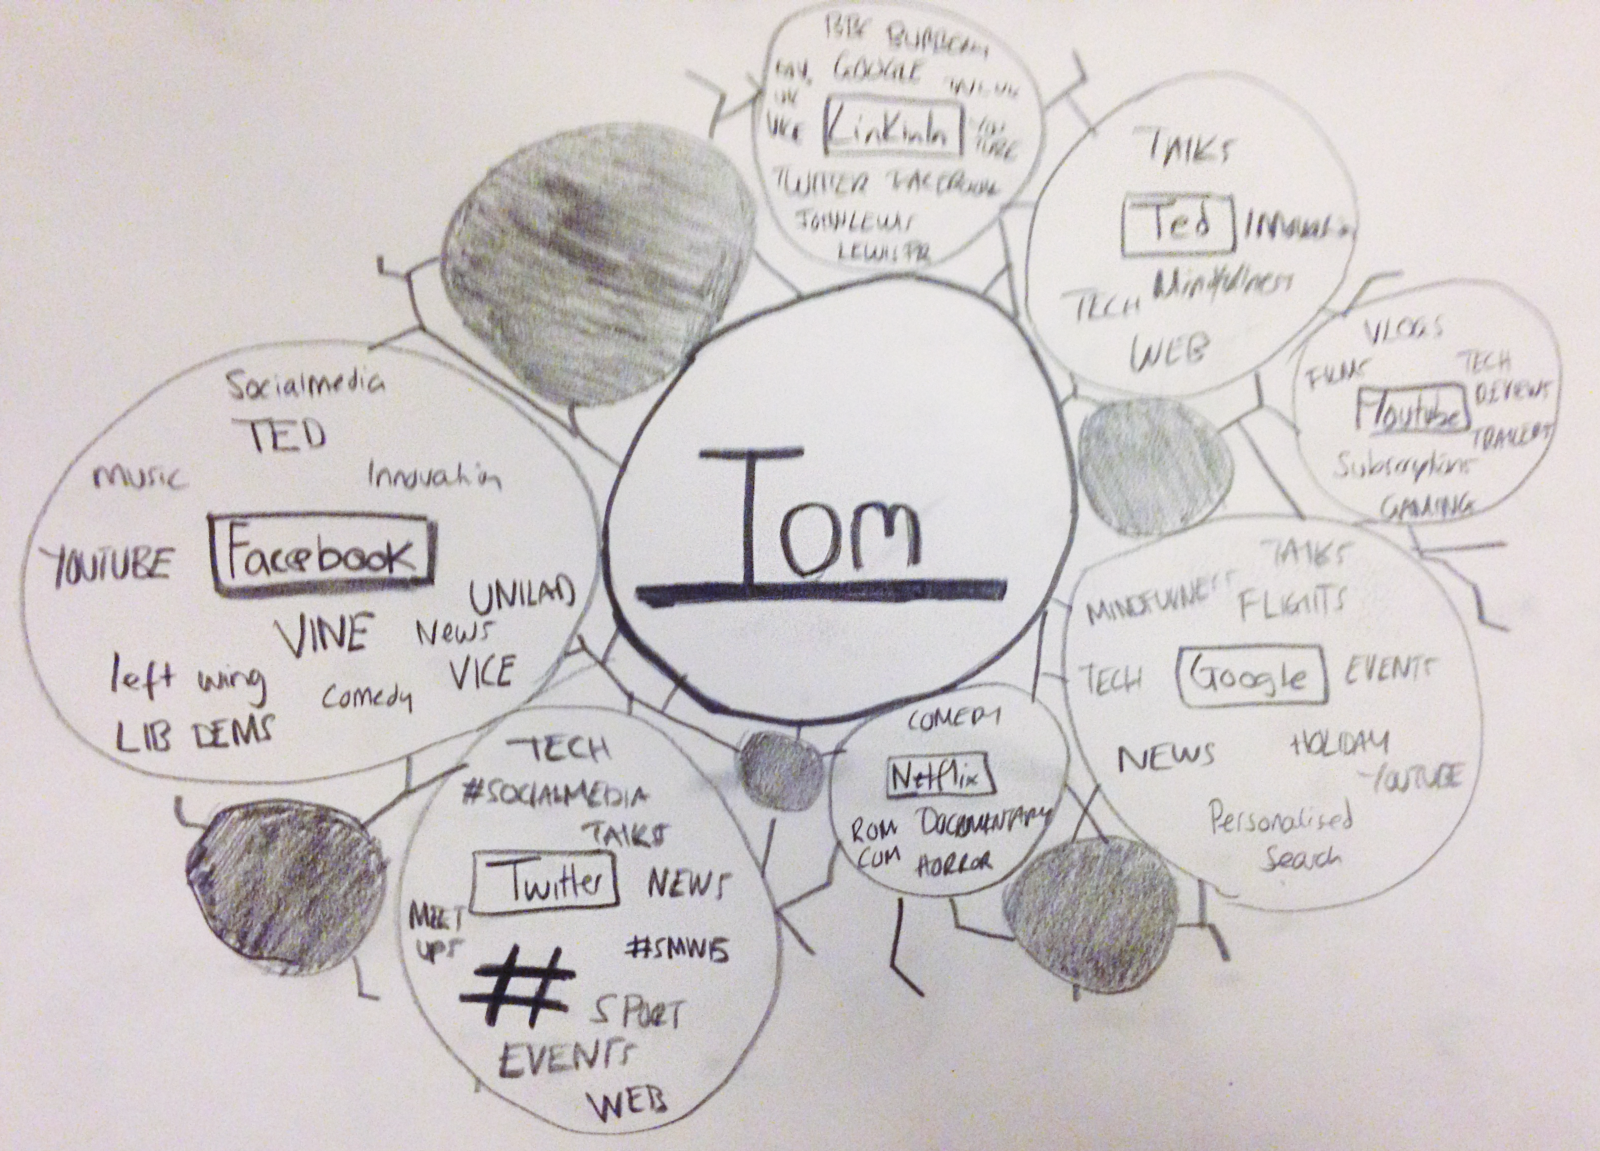 BBC BURBERRY
GOOGLE
UK
VICE
LinkinIn
YOU
TUBE
TWITTER FACEBOOK
JOHN LEWIS
LEWIS PR
TALKS
Ted
Innovation
Mindfullness
TECH
WEB
VLOGS
FILMS
TECH
REVIEWS
Youtube
TRAILERS
Subscriptions
GAMING
Socialmedia
TED
music
Innovation
YOUTUBE
Facebook
UNILAD
VINE
News
left wing
VICE
Comedy
LIB DEMS
Tom
TALKS
MINDFULNESS
FLIGHTS
TECH
Google
EVENTS
NEWS
HOLIDAY
YOUTUBE
Personalised
Search
COMEDY
Netflix
ROM
COM
DOCUMENTARY
HORROR
TECH
#SOCIALMEDIA
TALKS
Twitter
NEWS
MEET
UPS
#SMWB
#
SPORT
EVENTS
WEB